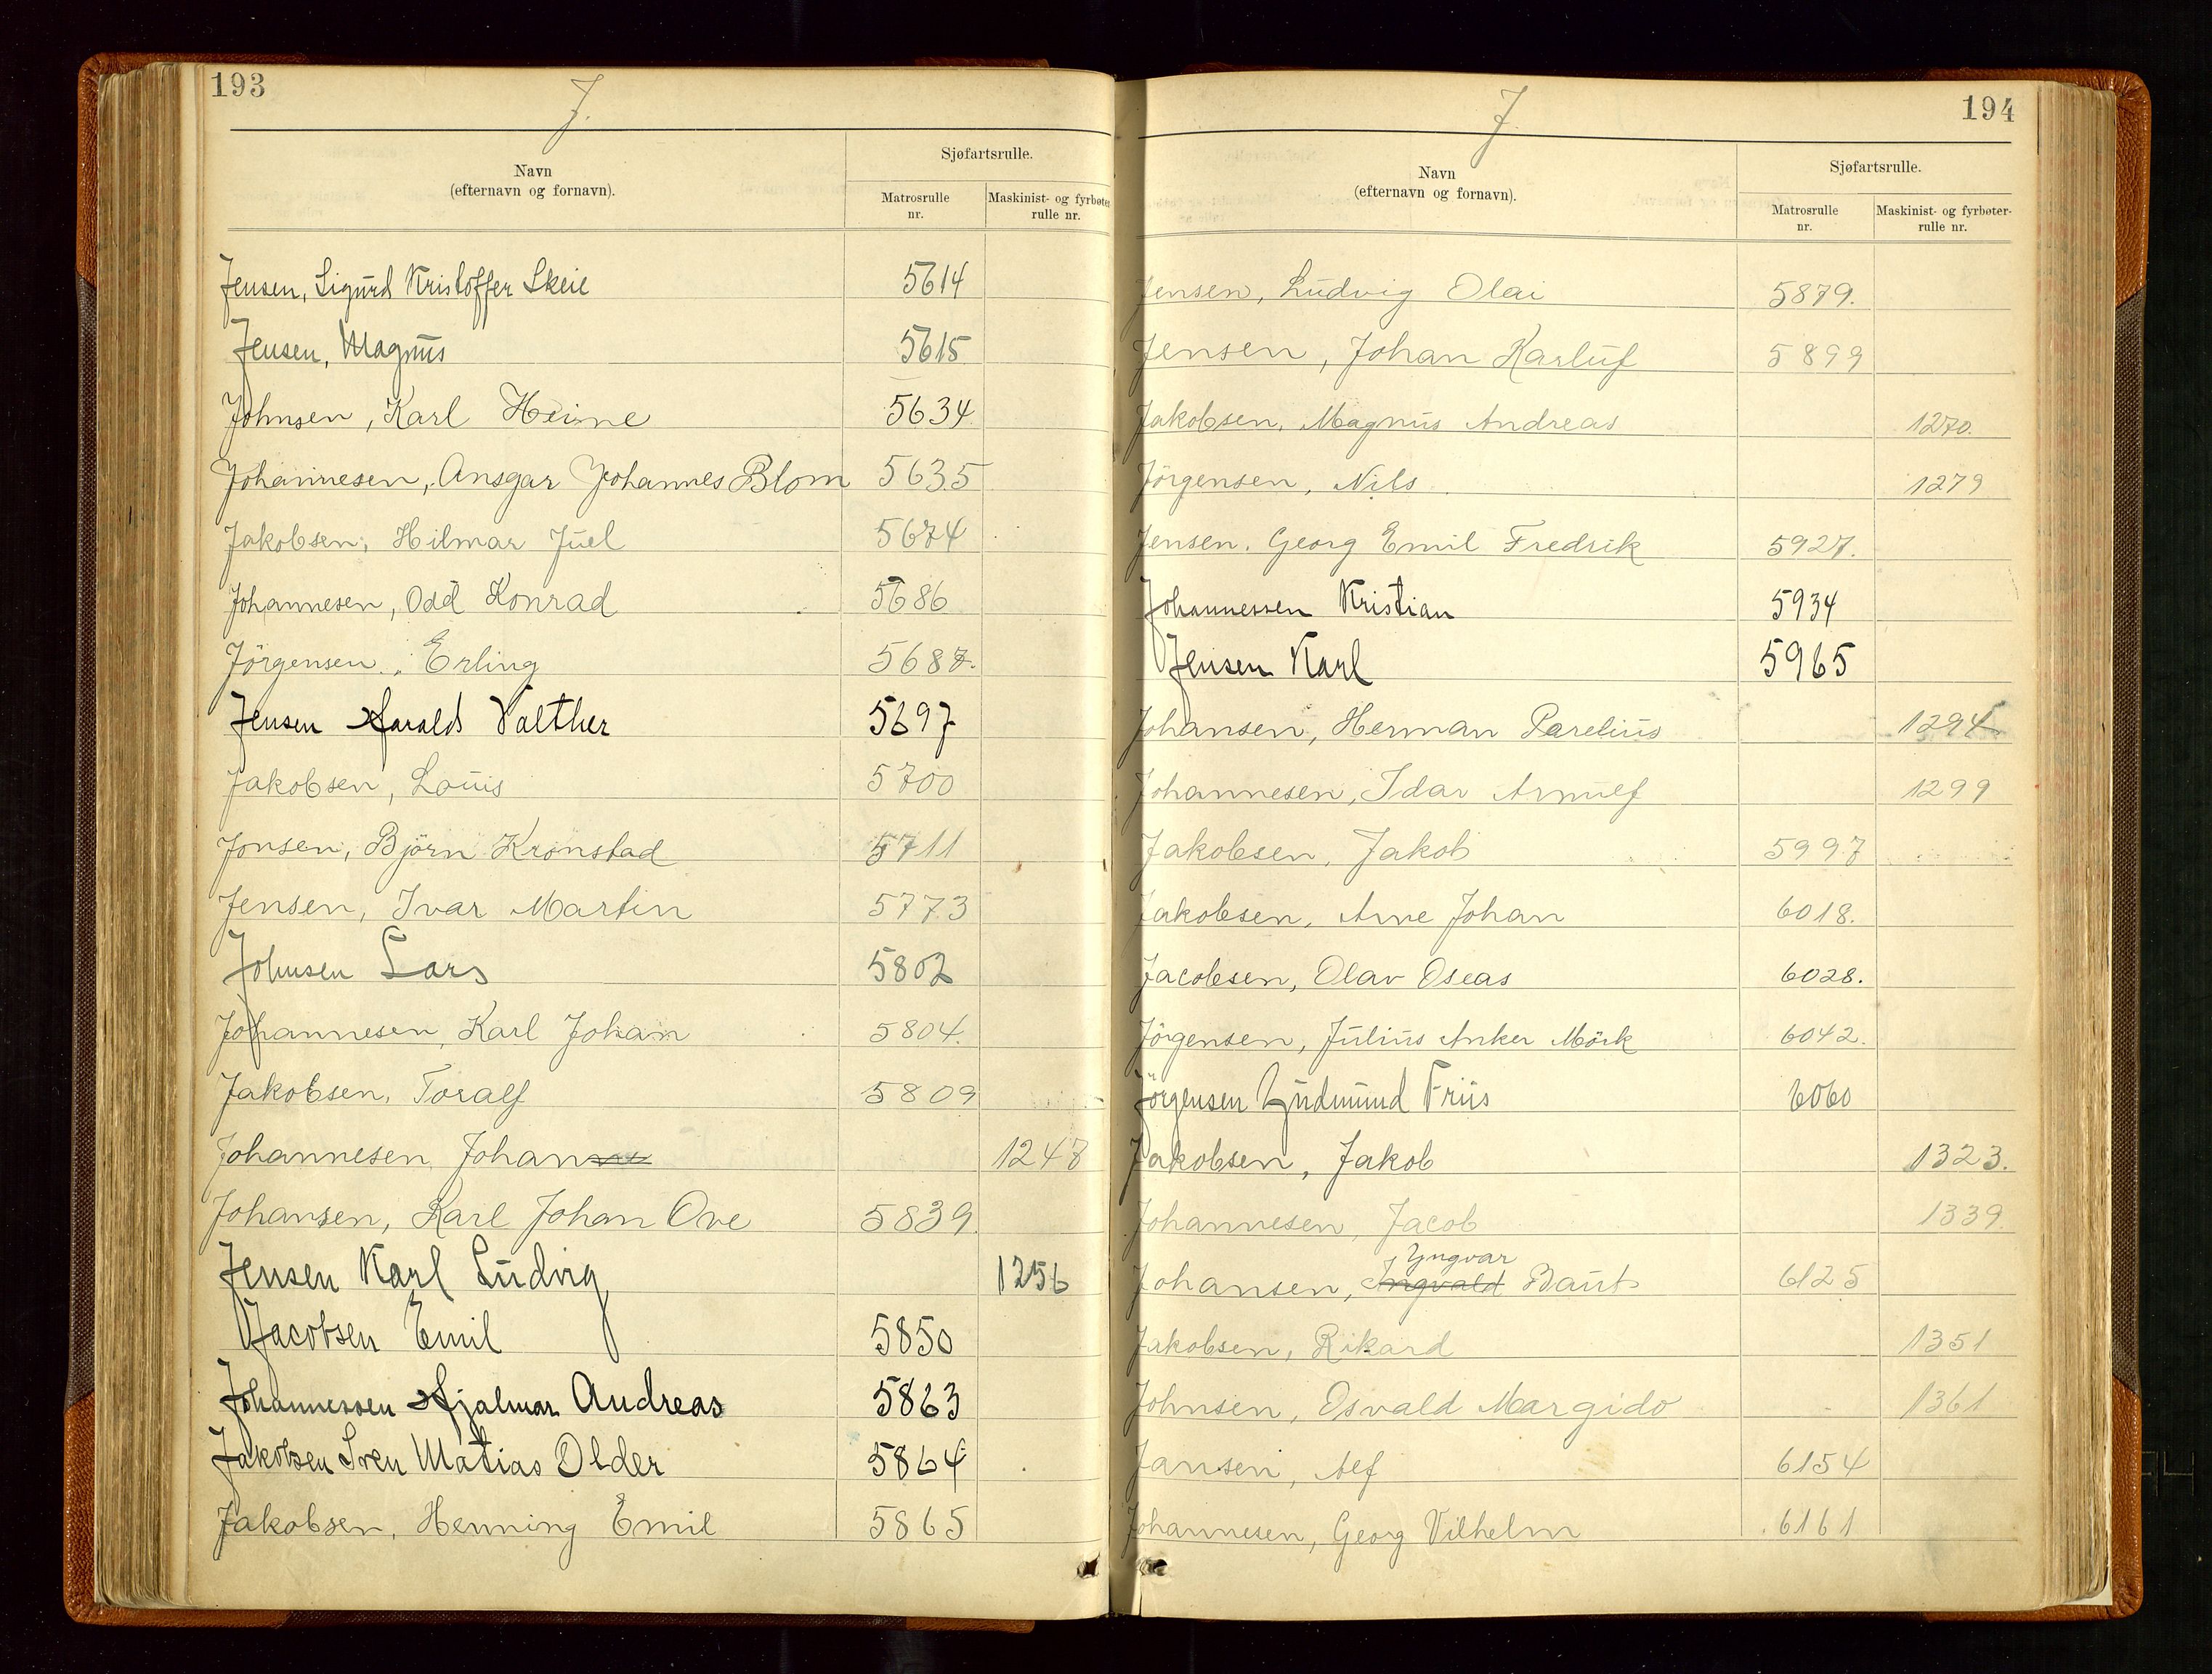 193
J.
Navn
(efternavn og fornavn).
Sjøfartsrulle.
Matrosrulle
nr.
Maskinist- og fyrbøter
rulle nr.
Jensen, Sigurd Kristoffer Skeie 5614
Jensen, Magnus 5615
Johnsen, Karl Heine 5634
Johannesen, Ansgar Johannes Blom 5635
Jakobsen, Hilmar Juel 5674
Johannesen, Odd Konrad 5686
Jörgensen, Erling 5687.
Jensen Harald Valther 5697
Jakobsen, Louis 5700
Jonsen, Björn Kronstad 5711
Jensen, Ivar Martin 5773
Johnsen Lars 5802
Johannesen, Karl Johan 5804.
Jakobsen, Toralf 5809
Johannesen, Johan 1248
Johansen, Karl Johan Ove 5839
Jensen Karl Ludvig 1256
Jacobsen Emil 5850
Johannessen Hjalmar Andreas 5863
Jakobsen Sven Matias Older 5864
Jakobsen, Henning Emil 5865
194
J.
Navn
(efternavn og fornavn).
Sjøfartsrulle.
Matrosrulle
nr.
Maskinist- og fyrbøter-
rulle nr.
Jensen, Ludvig Olai 5879.
Jensen, Johan Karluf 5899
Jakobsen, Magnus Andreas 1270.
Jörgensen, Nils 1279
Jensen. Georg Emil Fredrik 5927.
Johannessen Kristian 5934
Jensen Karl 5965
Johansen, Herman Parelius 1294
Johannesen, Idar Arnulf 1299
Jakobsen, Jakob 5997
Jakobsen, Arne Johan 6018.
Jacobsen, Olav Oseas 6028.
Jörgensen, Julius Anker Mörk 6042.
Jörgensen Gudmund Friis 6060
Jakobsen, Jakob 1323.
Johannesen, Jacob 1339.
Yngvar
Johansen, Ingvald Baut 6125
Jakobsen, Rikard 1351
Johnsen, Osvald Margido 1361
Jansen, Alf 6154
Johannesen, Georg Vilhelm 6161